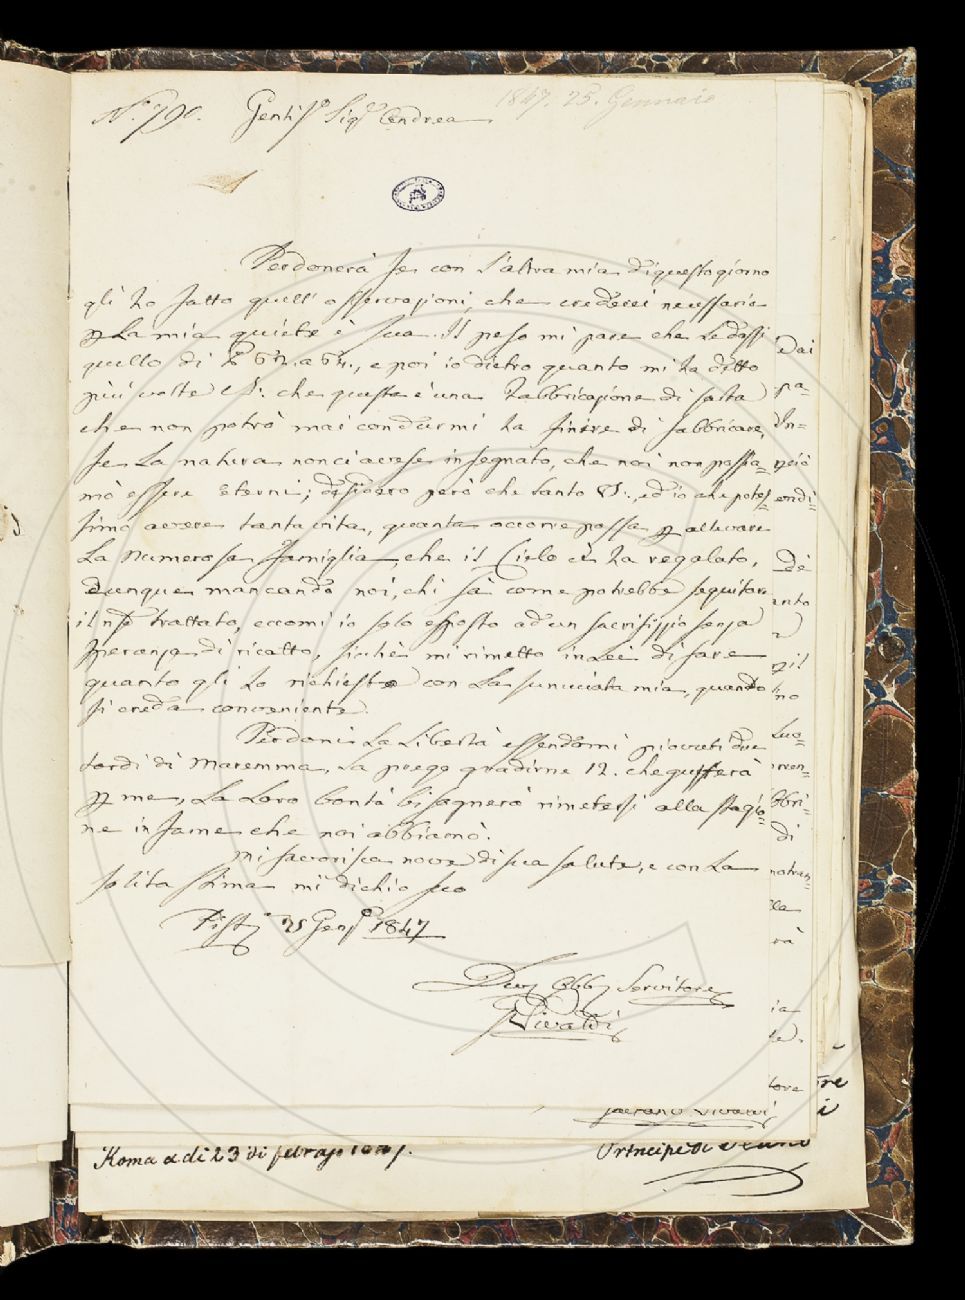 N.° 790. Gentil.° Sig.r Andrea
1847. 25. Gennaio
Perdonerà se con l'altra mia di questo giorno
gli ho fatto quell'osservazioni, che crederei necessarie
p La mia quiete è sua. Il peso mi pare che Le dassi
quello di, e poi io dietro quanto mi ha detto
più volte che questa è una Fabbricazione di fatta
che non potrò mai condurmi ha finire di fabbricare,
Se La natura non ci avesse insegnato, che noi non possia=
mò essere eterni; desidero però che tanto, ed io che potes=
simo avere tanta vita, quanta occorre possa p allevare
La numerosa Famiglia che il Cielo ci ha regalato,
dunque mancando noi, chi sà come potrebbe seguitare
il nro trattato, eccomi io solo esposto ad un sacrifizzio senza
speranza di ricatto, sichè mi rimetto in Lei di fare
quanto gli ho richiesto con La sunciata mia, quando
si creda conveniente.
Perdoni La Libertà essendomi piovuti due
tordi di Maremma, La prego gradirne 12. che gusterà
p me, La Loro bontà bisognerà rimetersi alla stagio=
ne infame che noi abbiamo.
Mi favorisca nove di sua salute, e con La
solita stima mi dichio suo
Pist.a 25 Gen.° 1847
Dev. Obb. Servitore
G Vivaldi
Dai
pa=
In=
endi=
Dè
anto
pil
no
Luo=
rven=
bbri=
di
lla
rà
ia
tore
Gaetano Vivaldi
Roma a di 23 di febrajo 1847.
Principe di